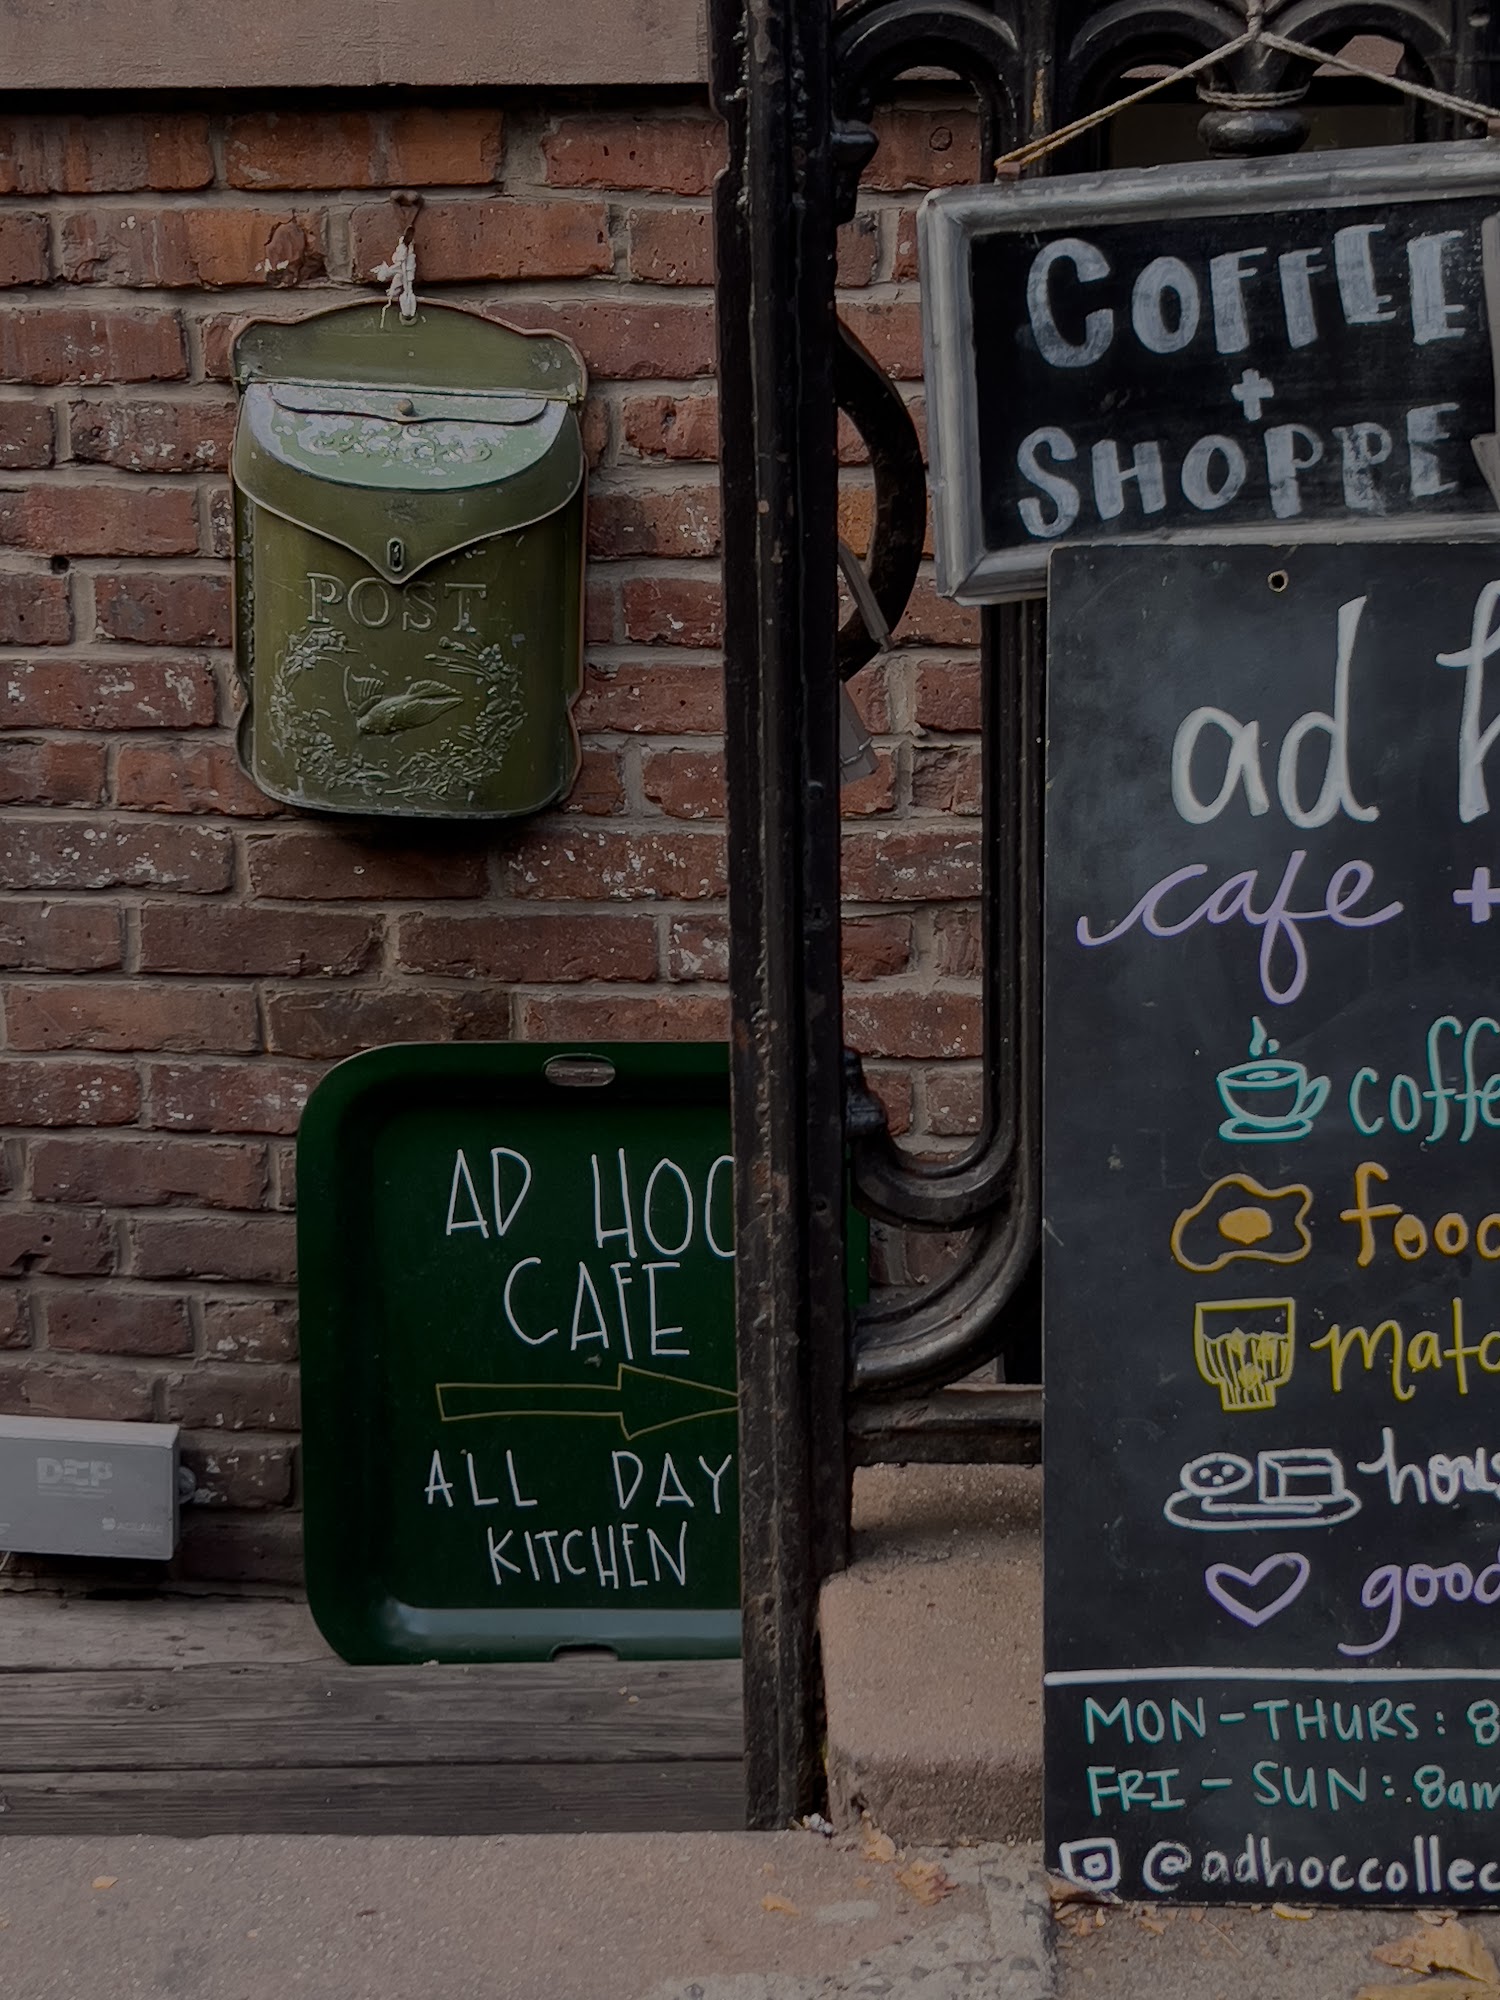 POST
AD HOC
CAFE
ALL DAY
KITCHEN
COFFEE
+
SHOPPE
ad h
cafe +
coffe
food
matc
hous
good
MON-THURS: 8
FRI - SUN: 8am
@adhoccollec
DEP